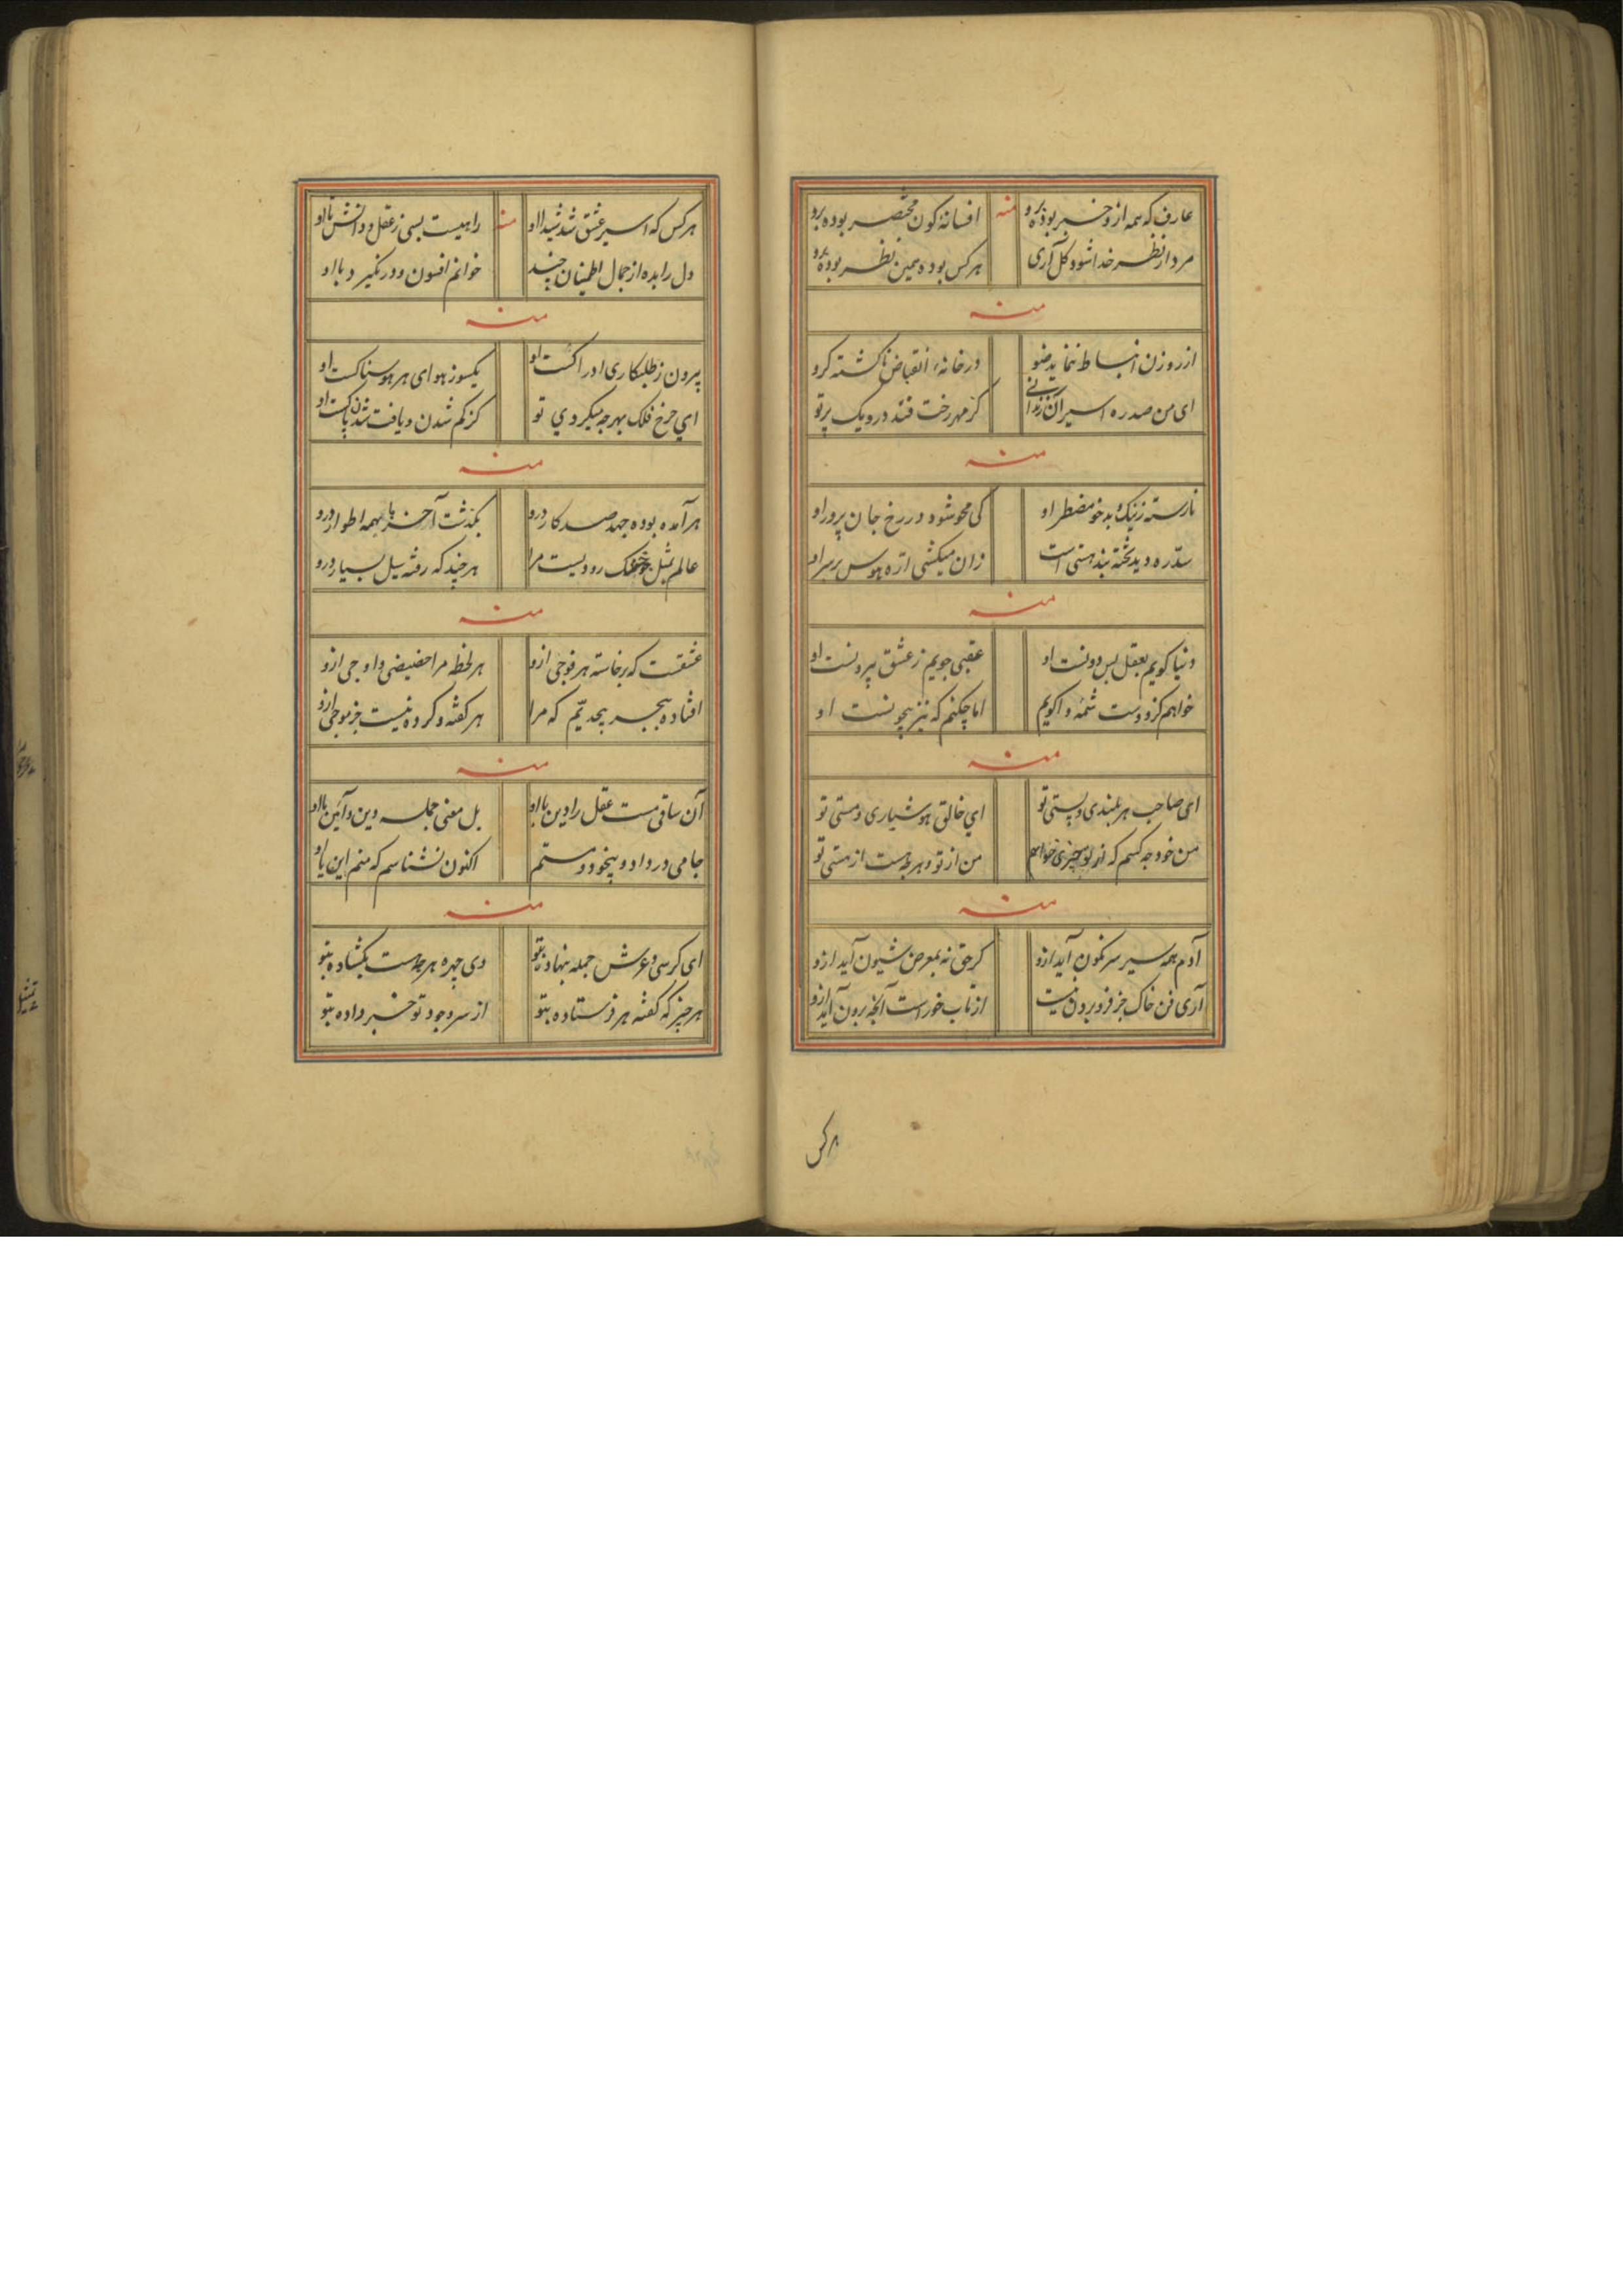 عارف که همه ازو خبر بوده برو منه افسانهٔ کون مختصر بوده برو
مرد از نظر خدا شود کل آری هر کس بوده همین نظر بوده برو
منه
از روزن انبساط ننماید ضو در خانهٔ انقباض ناکشته کرو
ای من صد ره اسیر آن کز مهر رخت فتد درو یک پرتو
منه
نارسته ز نیک و بد خو مضطر او کی محو شود در رخ جان پرور او
سد ره دید تخته بند هستی است زان میکشی اره هوس بر سر او
منه
دنیا کویم بعقل بس دونست او عقبی جویم ز عشق بیرونست او
خواهم کز دوست شمهٔ واکویم اما چکنم که نیز بیچونست او
منه
ای صاحب هر بلندی و پستی تو ای خالق هوشیاری و مستی تو
من خود چه کسم که از تو چیزی خواهم من از تو و هر چه هست از هستی تو
منه
آدم همه سیر سرنکون آید ازو کر حق نه بمعرض شیون آید ازو
آری فن خاک جز فرو بردن نیست از تاب خور است آنچه برون آید ازو
هر کس
هر کس که اسیر عشق شد شیدا او منه راهیست بسی ز عقل و دانش تا او
دل را بده از جمال اطمینان چند خوانم افسون و در نکیرد با او
منه
بیرون ز طلبکاری ادراکست او یکسو ز هوای هر هوسناکست او
ای چرخ فلک بهر چه میکردی تو کز کم شدن و یافت شدن پاکست او
منه
هر آمده بوده جهد صد کار درو بکذشت آخر بهمه اطوار درو
عالم بمثل خشک رودیست مرا هر چند که رفته سیل بسیار درو
منه
عشقست که برخاسته هر فوجی ازو هر لحظه مرا حضیضی و اوجی ازو
افتاده ببحر بیحدیم که مرا هر کفته و کرده نیست جز موجی ازو
منه
آن ساقی مست عقل را دین با او بل معنی جمله دین و آئین با او
جامی در داد و بیخود و مستم اکنون نشناسم که منم این یا او
منه
ای کرسی و عرش جمله بنهاده بتو وی چهره هر چه هست بکشاده بتو
هر چیز که کفته هر فرستاده بتو از سر وجود تو خبر داده بتو